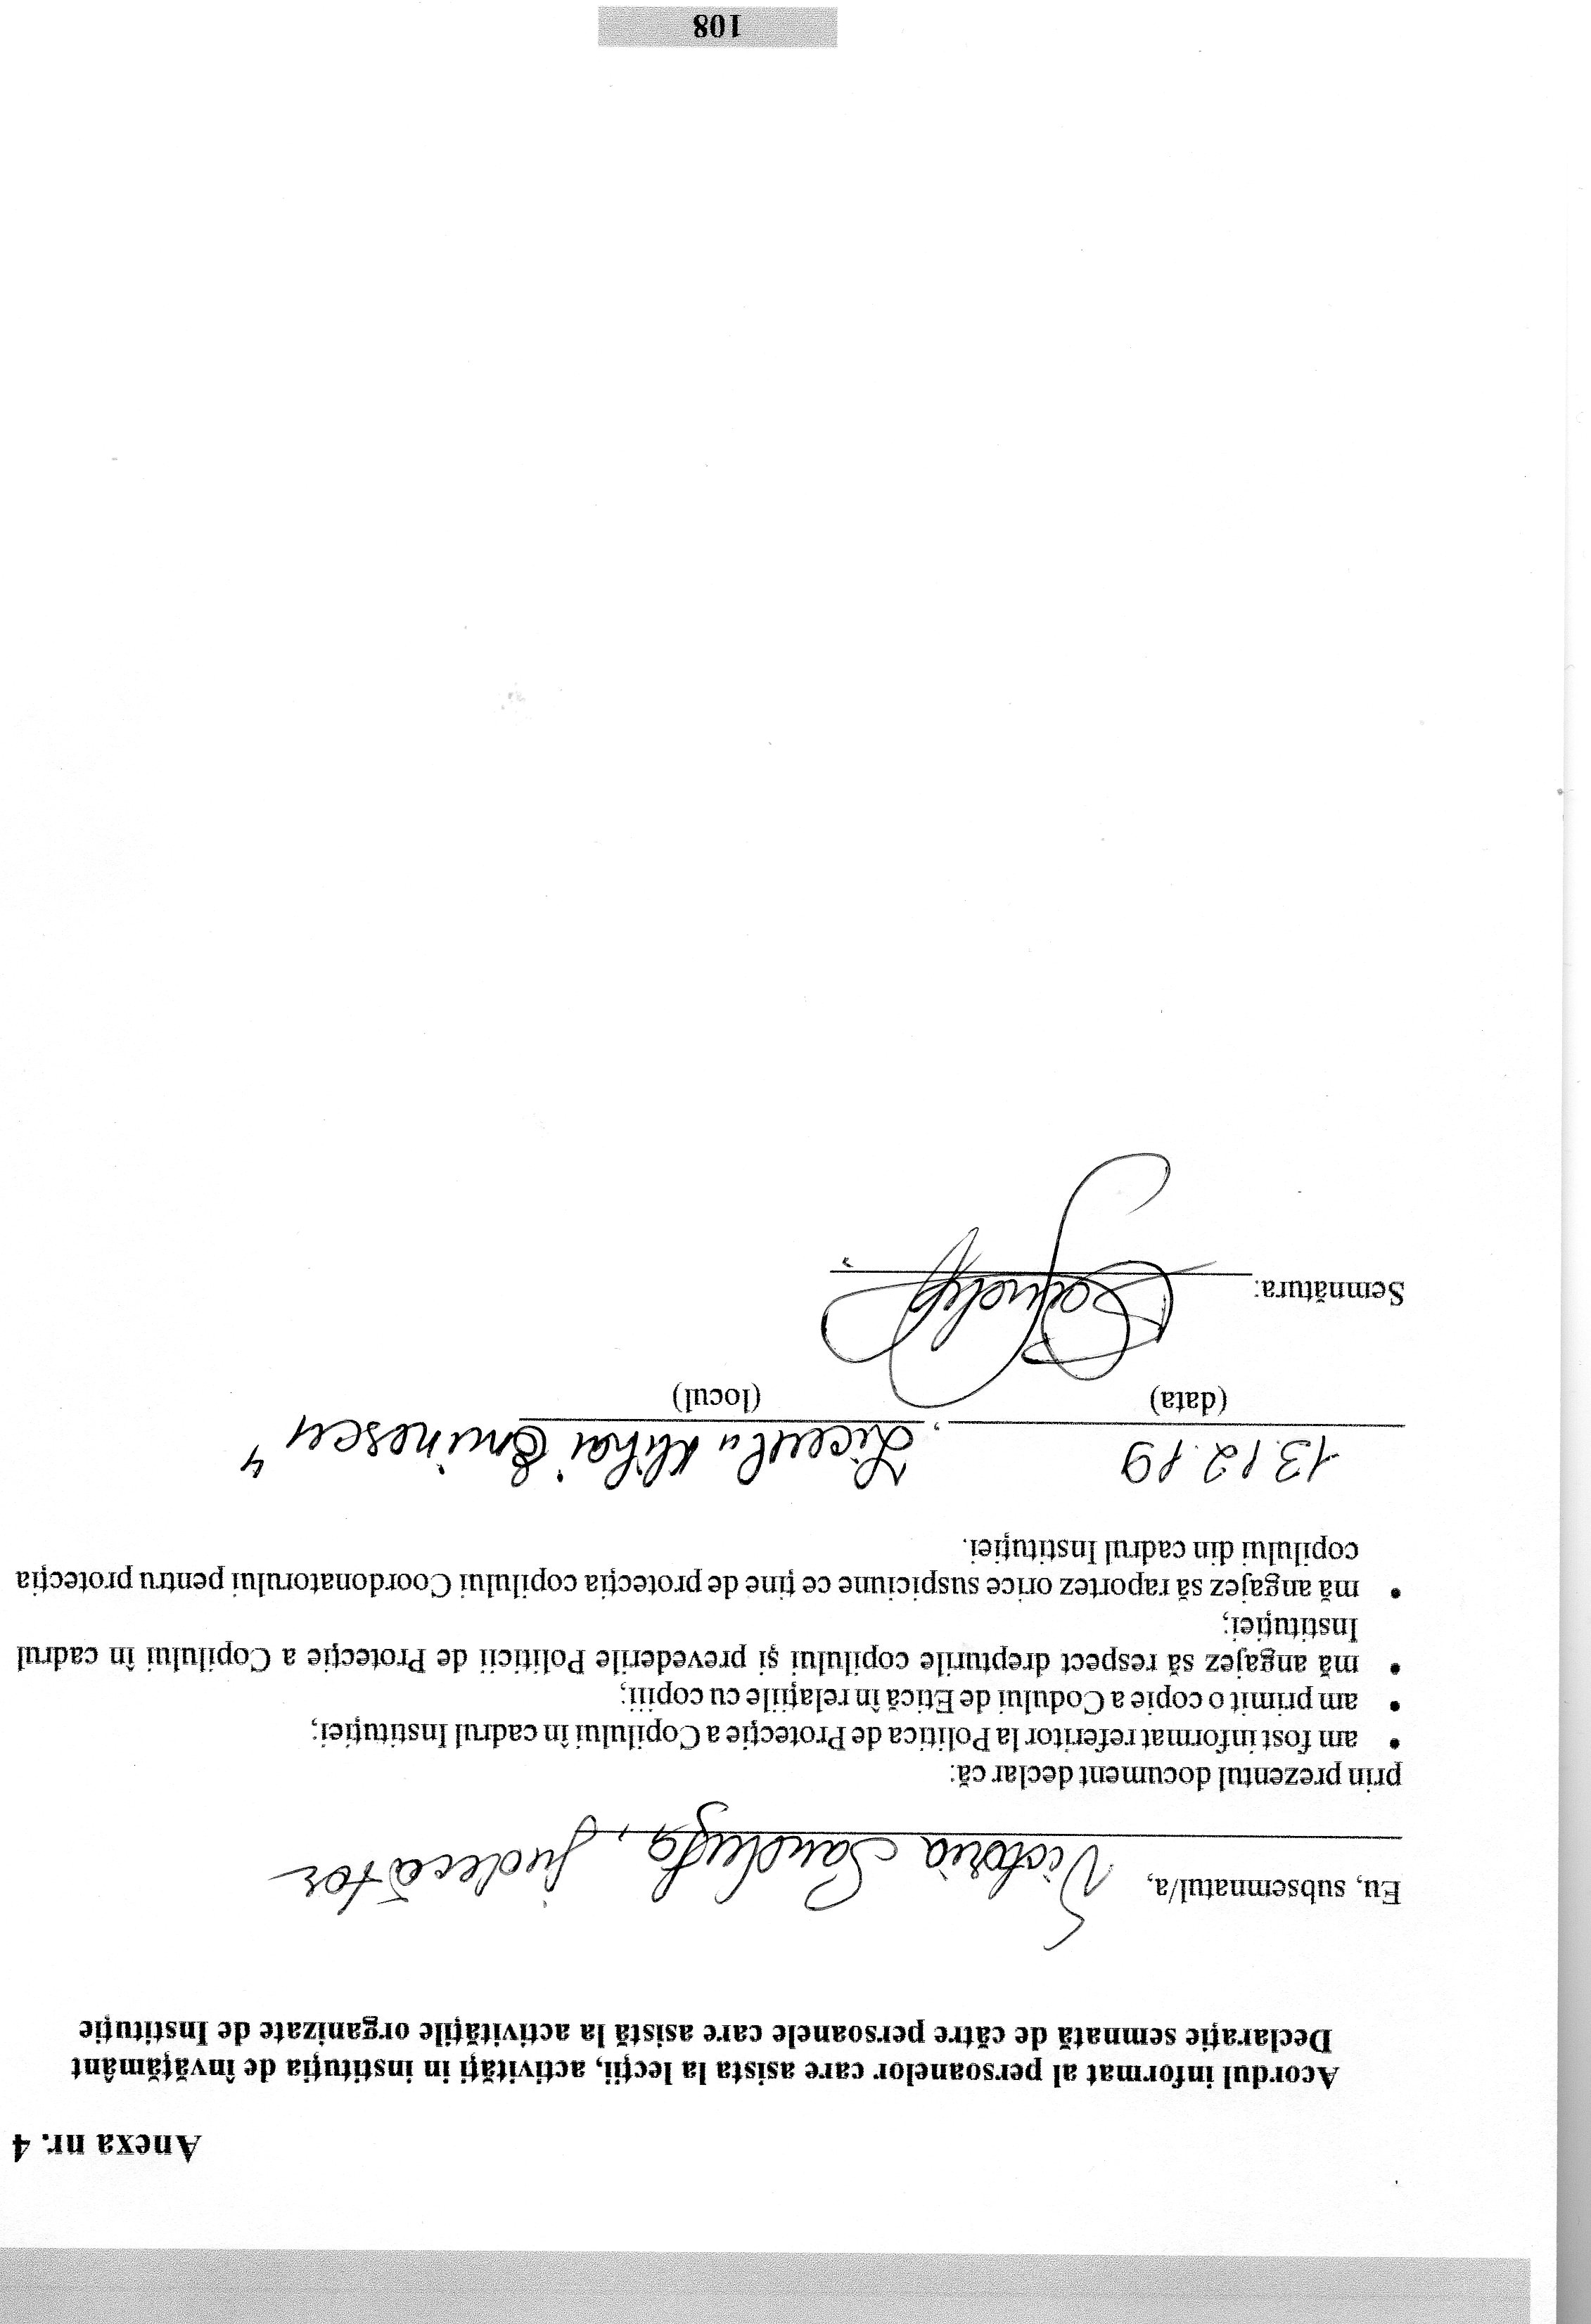 Anexa nr. 4
Acordul informat al persoanelor care asista la lecții, activități in instituția de învățământ
Declarație semnată de către persoanele care asistă la activitățile organizate de Instituție
Eu, subsemnatul/a, Victoria Sanduța, judecător
prin prezentul document declar că:
• am fost informat referitor la Politica de Protecție a Copilului în cadrul Instituției;
• am primit o copie a Codului de Etică în relațiile cu copiii;
• mă angajez să respect drepturile copilului și prevederile Politicii de Protecție a Copilului în cadrul
Instituției;
• mă angajez să raportez orice suspiciune ce ține de protecția copilului Coordonatorului pentru protecția
copilului din cadrul Instituției.
13.12.19, Liceul „Mihai Eminescu"
(data) (locul)
Semnătura:
108